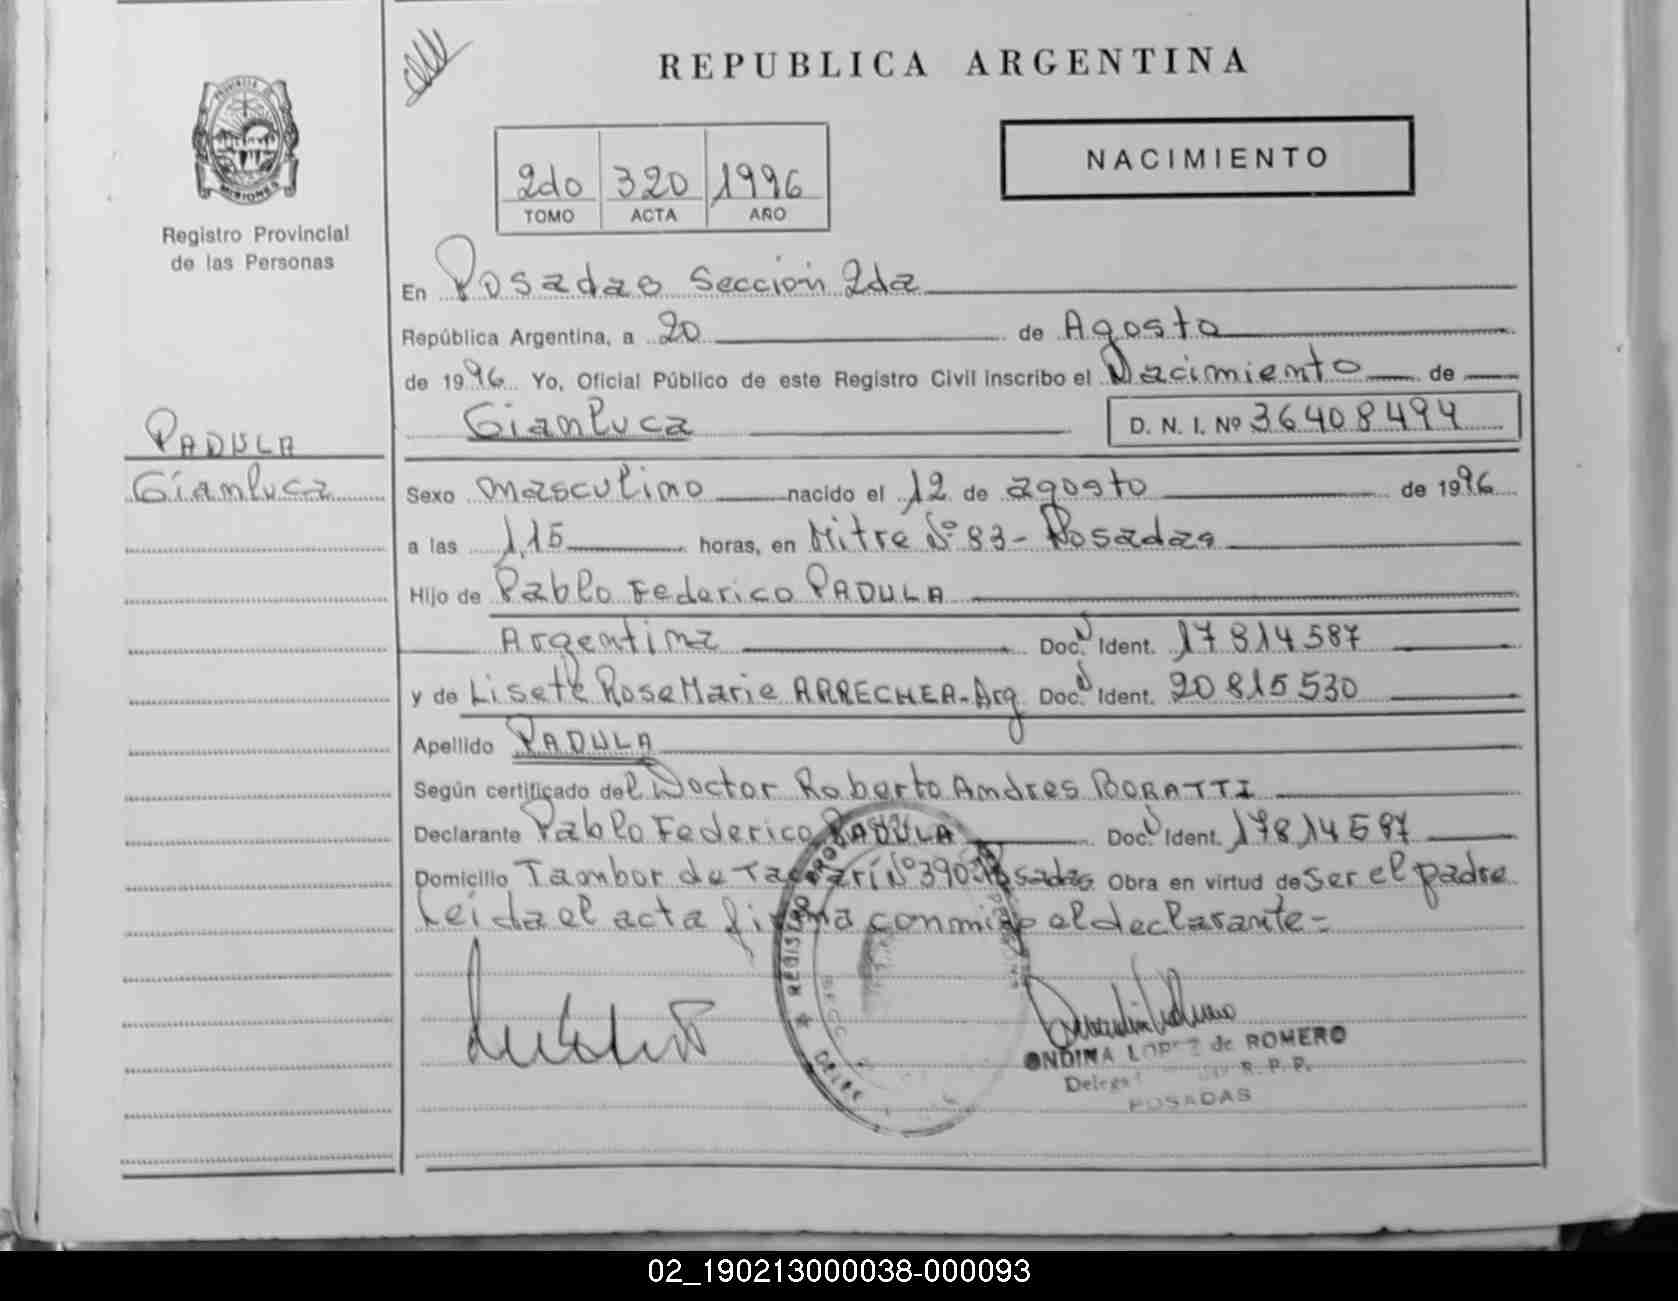 REPUBLICA ARGENTINA
PROVINCIA DE
MISIONES
Registro Provincial
de las Personas
2do 320 1996
TOMO ACTA AÑO
NACIMIENTO
En Posadas Sección 2da
República Argentina, a 20 de Agosto
de 1996 Yo, Oficial Público de este Registro Civil inscribo el Nacimiento de
Gianluca D. N. I. Nº 36408494
PADULA
Gianluca
Sexo masculino nacido el 12 de agosto de 1996
a las 1,15 horas, en Mitre Nº 83 - Posadas
Hijo de Pablo Federico PADULA
Argentina Doc. N Ident. 17814587
y de Lisete RoseMarie ARRECHEA - Arg Doc. N Ident. 20815530
Apellido PADULA
Según certificado del Doctor Roberto Andres BORATTI
Declarante Pablo Federico PADULA Doc. N Ident. 17814587
Domicilio Tambor de Tacuarí Nº 390 Posadas Obra en virtud de ser el padre
Leída el acta firma conmigo el declarante =
REGISTRO PRO
ONDINA LOPEZ de ROMERO
R. P. P.
POSADAS
02_190213000038-000093